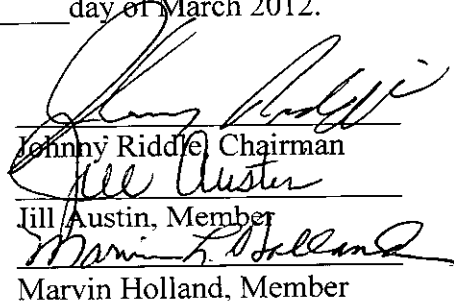 ______day of March 2012.
Johnny Riddle
Johnny Riddle, Chairman
Jill Austin
Jill Austin, Member
Marvin L. Holland
Marvin Holland, Member